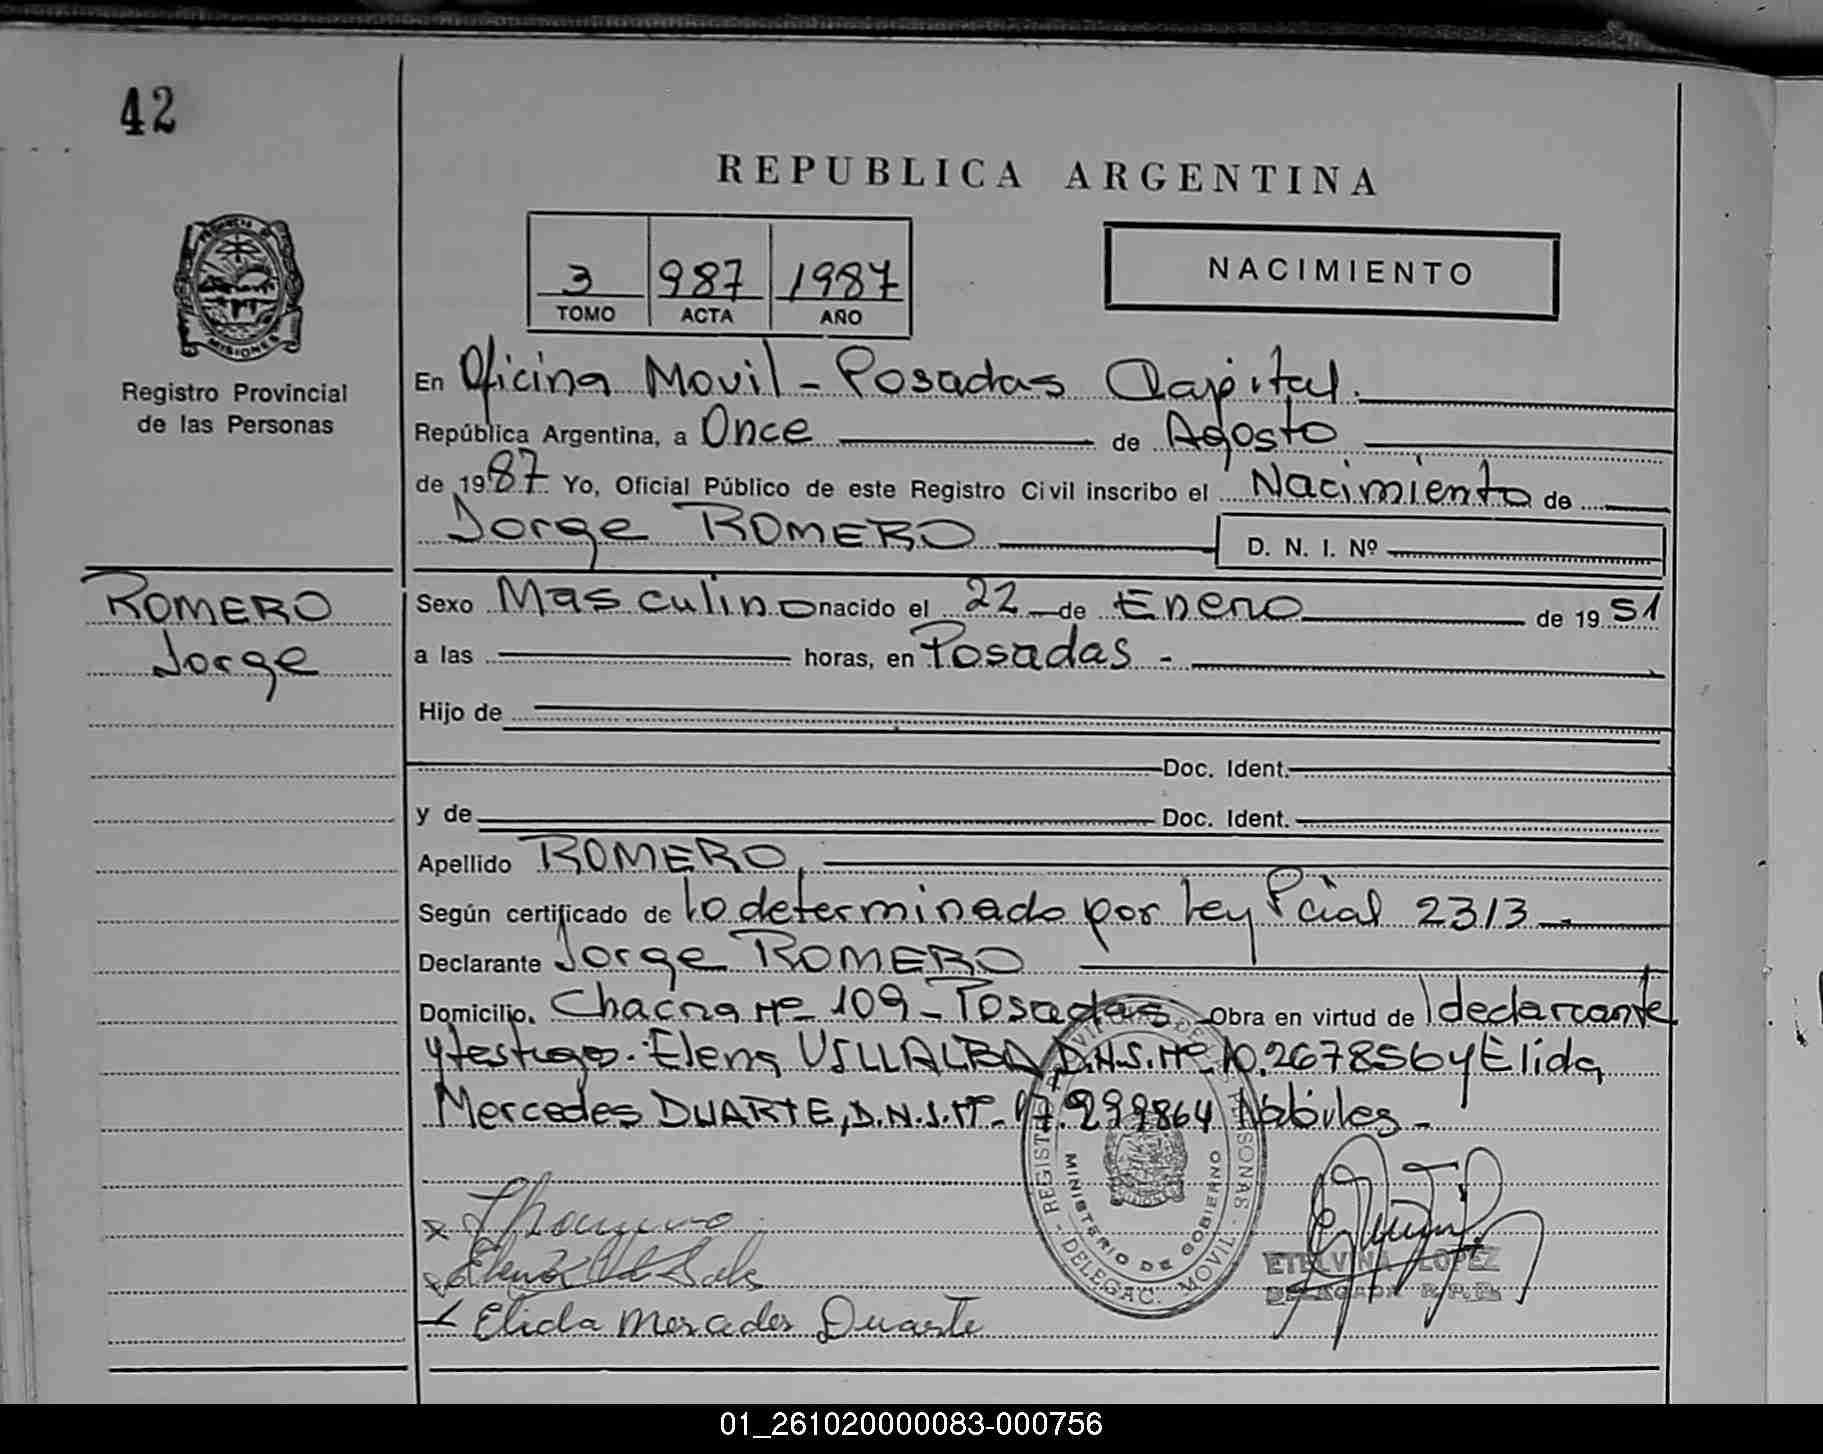 42
REPUBLICA ARGENTINA
3 987 1987
TOMO ACTA AÑO
NACIMIENTO
PROVINCIA DE MISIONES
Registro Provincial
de las Personas
En Oficina Movil - Posadas Capital.
República Argentina, a Once de Agosto
de 1987 Yo, Oficial Público de este Registro Civil inscribo el Nacimiento de
Jorge ROMERO D. N. I. Nº
ROMERO
Jorge
Sexo Masculino nacido el 22 de Enero de 1951
a las horas, en Posadas -
Hijo de
Doc. Ident.
y de Doc. Ident.
Apellido ROMERO
Según certificado de lo determinado por Ley Pcial 2313
Declarante Jorge ROMERO
Domicilio. Chacra Nº 109 - Posadas Obra en virtud de l declarante
y testigos. Elena VILLALBA, D.N.I. Nº 10.267856 y Elida
Mercedes DUARTE, D.N.I. Nº 17. Hábiles -
REGISTRO PERSONAS - DELEGAC. MOVIL -
MINISTERIO DE GOBIERNO
Elida Mercedes Duarte
ETELVINA LOPEZ
01_261020000083-000756